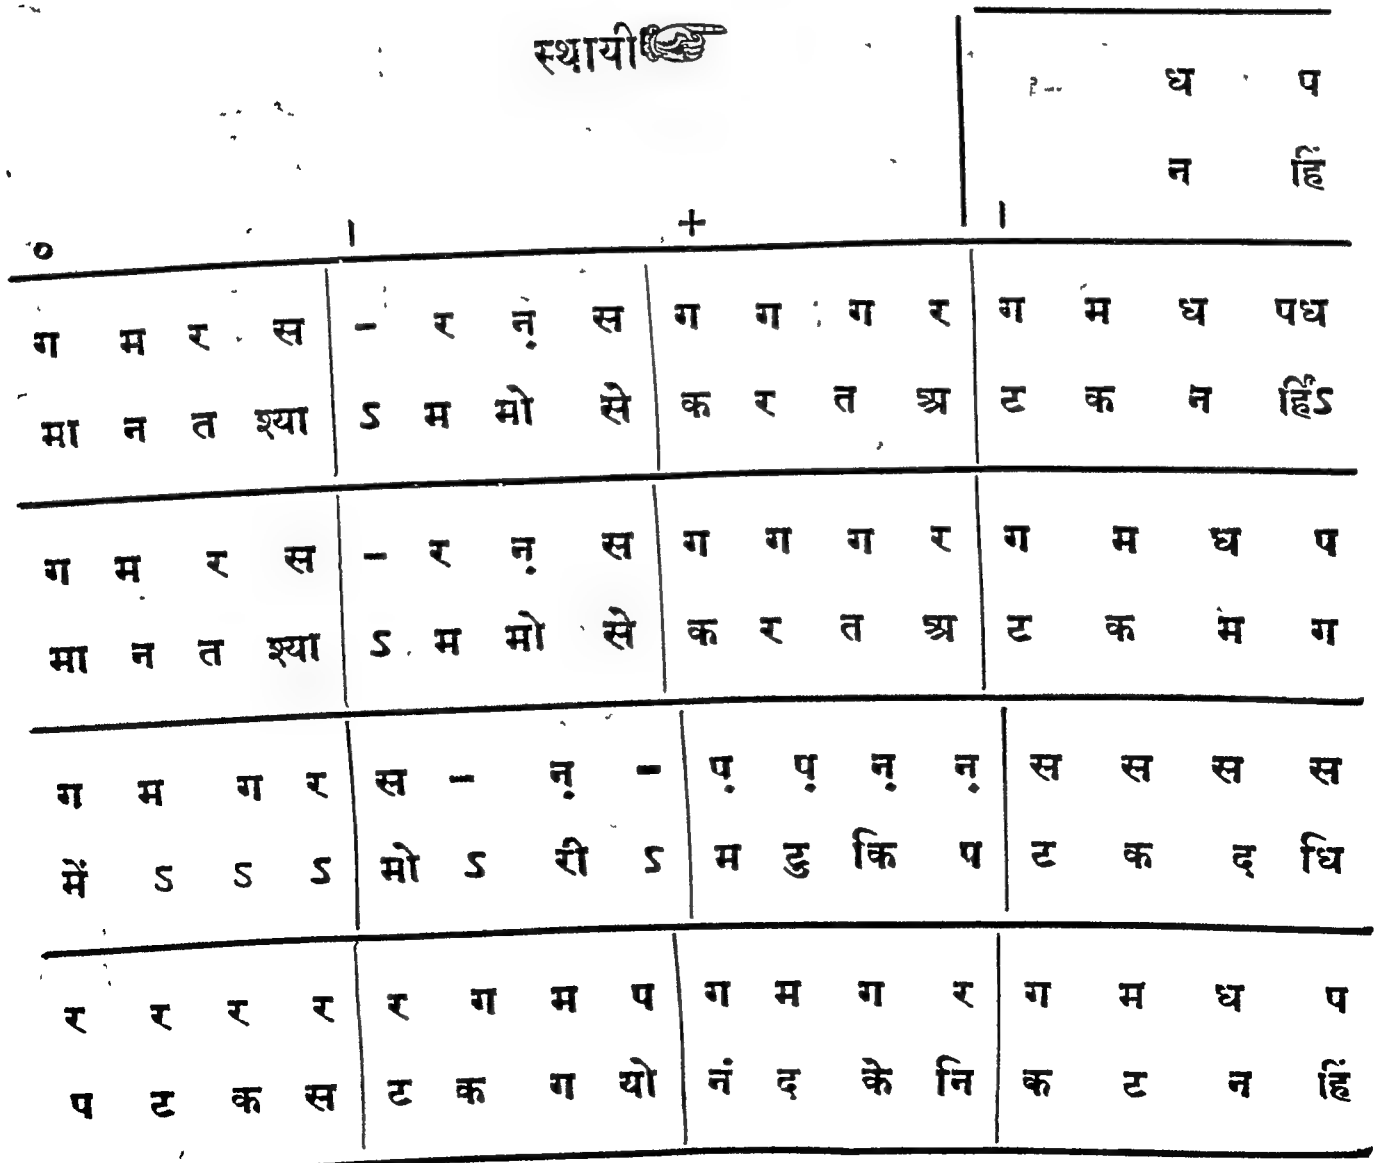 स्थायी
ध प
न हिं
० । + ।
ग म र स - र ऩ स ग ग ग र ग म ध पध
मा न त श्या ऽ म मो से क र त अ ट क न हिंऽ
ग म र स - र ऩ स ग ग ग र ग म ध प
मा न त श्या ऽ म मो से क र त अ ट क म ग
ग म ग र स - ऩ - प़ प़ ऩ ऩ स स स स
में ऽ ऽ ऽ मो ऽ री ऽ म टु कि प ट क द धि
र र र र र ग म प ग म ग र ग म ध प
प ट क स ट क ग यो नं द के नि क ट न हिं